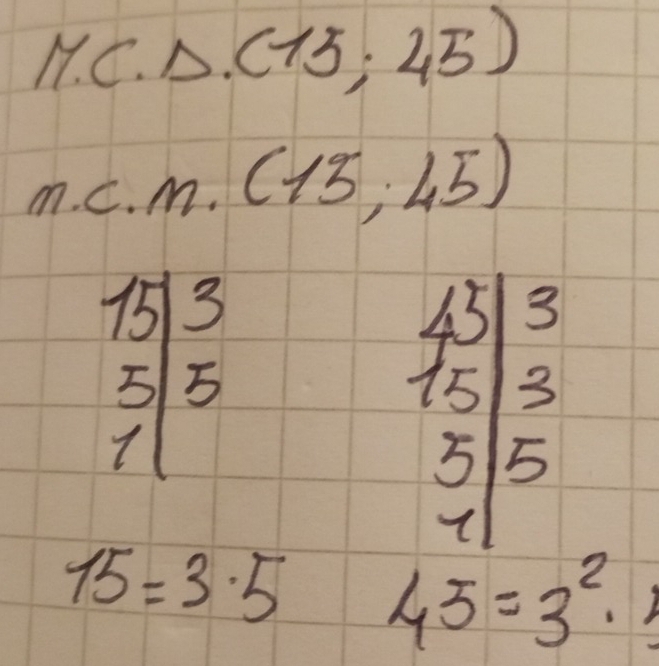 M.C.D.(15; 45)
m.c.m.(15; 45)
15|3 45|3
5|5 15|3
1| 5|5
1|
15=3·5 45=3²·5